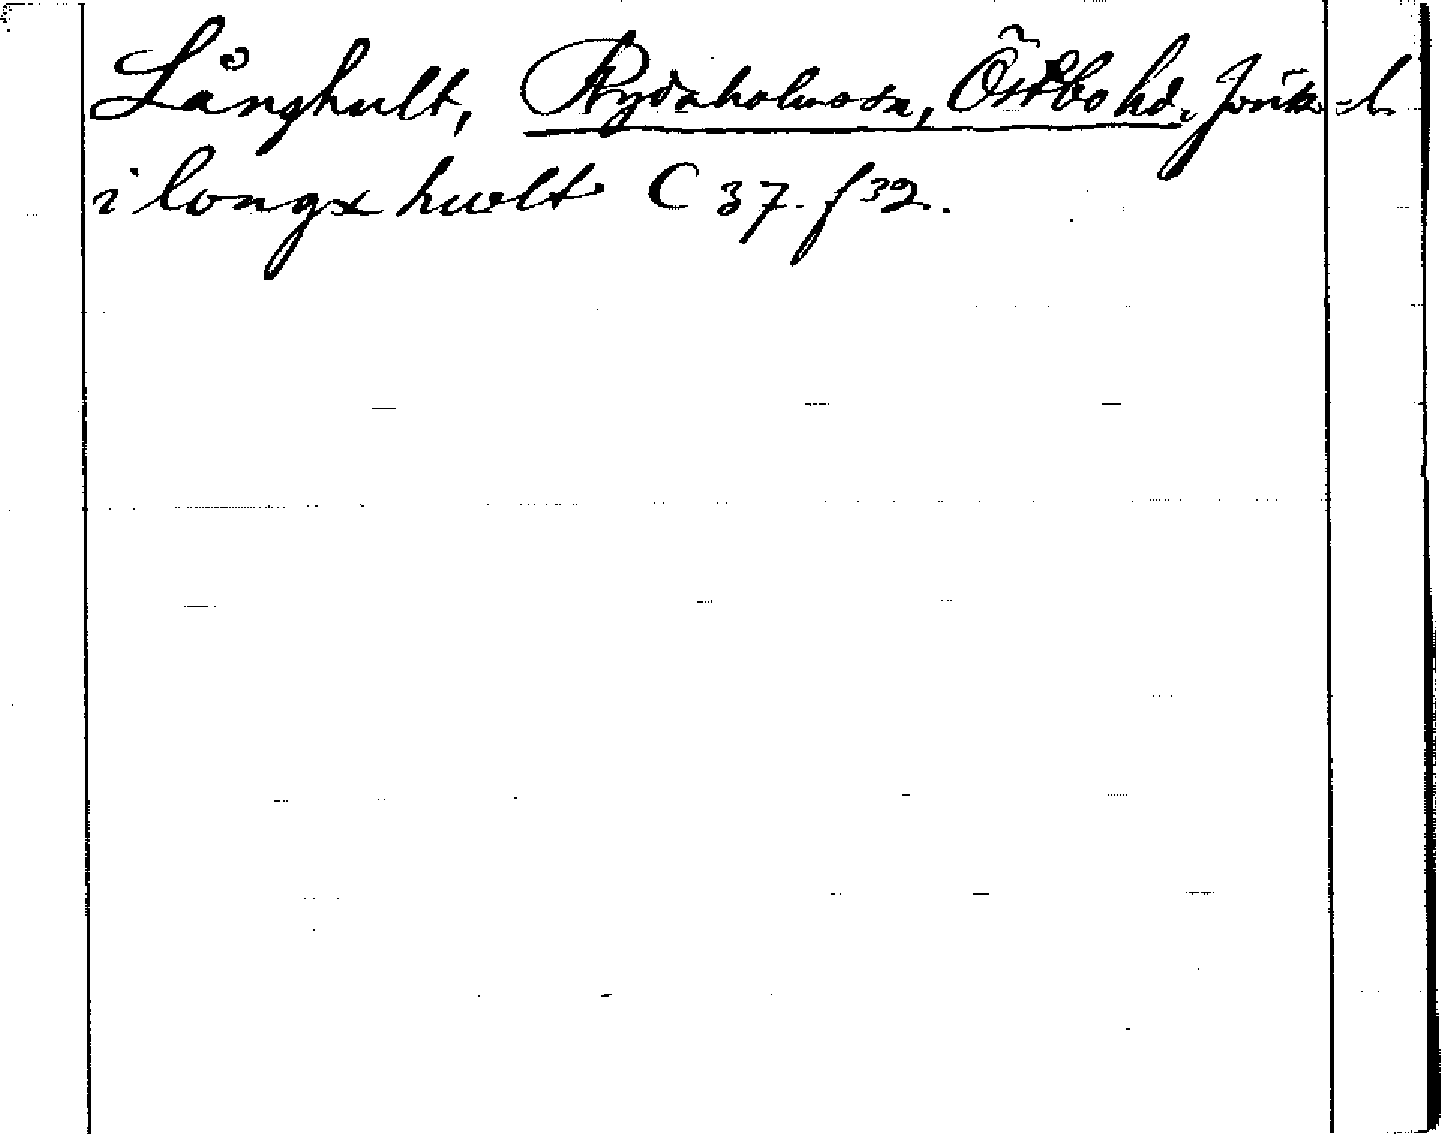 Långhult, Rydaholms sn, Östbo hd. Jönk. l.
i longx hwlt C 37. f 32.